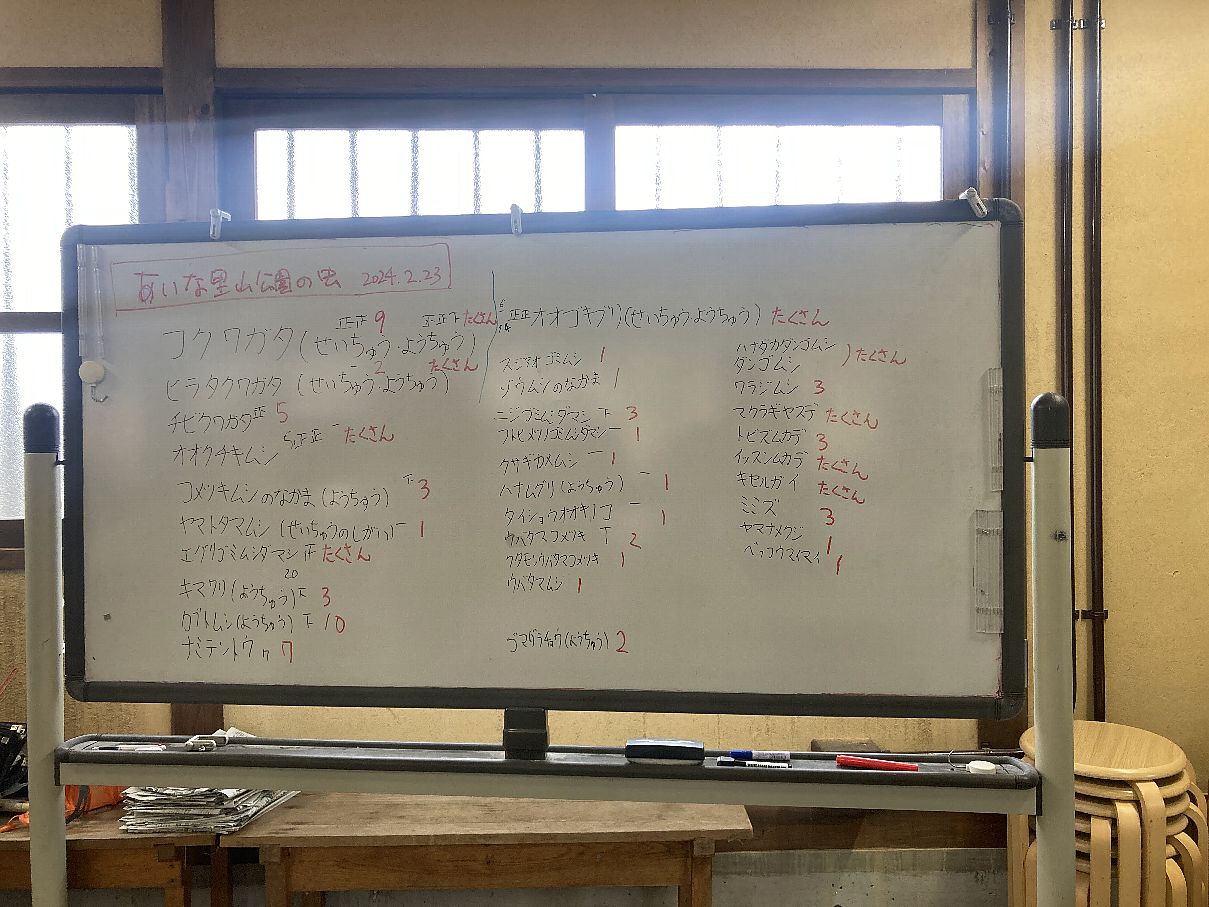 あいな里山公園の虫 2024.2.23
正正 9 正正下 たくさん
コクワガタ(せいちゅう・ようちゅう)
一 2 たくさん
ヒラタクワガタ (せいちゅう・ようちゅう)
チビクワガタ 正 5
オオクチキムシ 正正一 たくさん
コメツキムシのなかま(ようちゅう) 下 3
ヤマトタマムシ (せいちゅうのしがい) 一 1
エグリゴミムシダマシ 正 たくさん
20
キマワリ(ようちゅう) 下 3
カブトムシ(ようちゅう) 下 10
ナミテントウ 7
正正 オオゴキブリ(せいちゅう・ようちゅう) たくさん
スジアオゴミムシ 1
ゾウムシのなかま 1
ニジゴミムシダマシ 下 3
フトヒメツノゴミムシダマシ 一 1
クサギカメムシ 一 1
ハナムグリ(ようちゅう) 一 1
タイショウオオキノコ 一 1
ウバタマコメツキ 下 2
フタモンウバタマコメツキ 1
ウバタマムシ 1
ゴマダラチョウ(ようちゅう) 2
ハナダカダンゴムシ
ダンゴムシ ) たくさん
ワラジムシ 3
マクラギヤスデ たくさん
トビズムカデ 3
イッスンムカデ たくさん
キセルガイ たくさん
ミミズ 3
ヤマナメクジ 1
ベッコウマイマイ 1